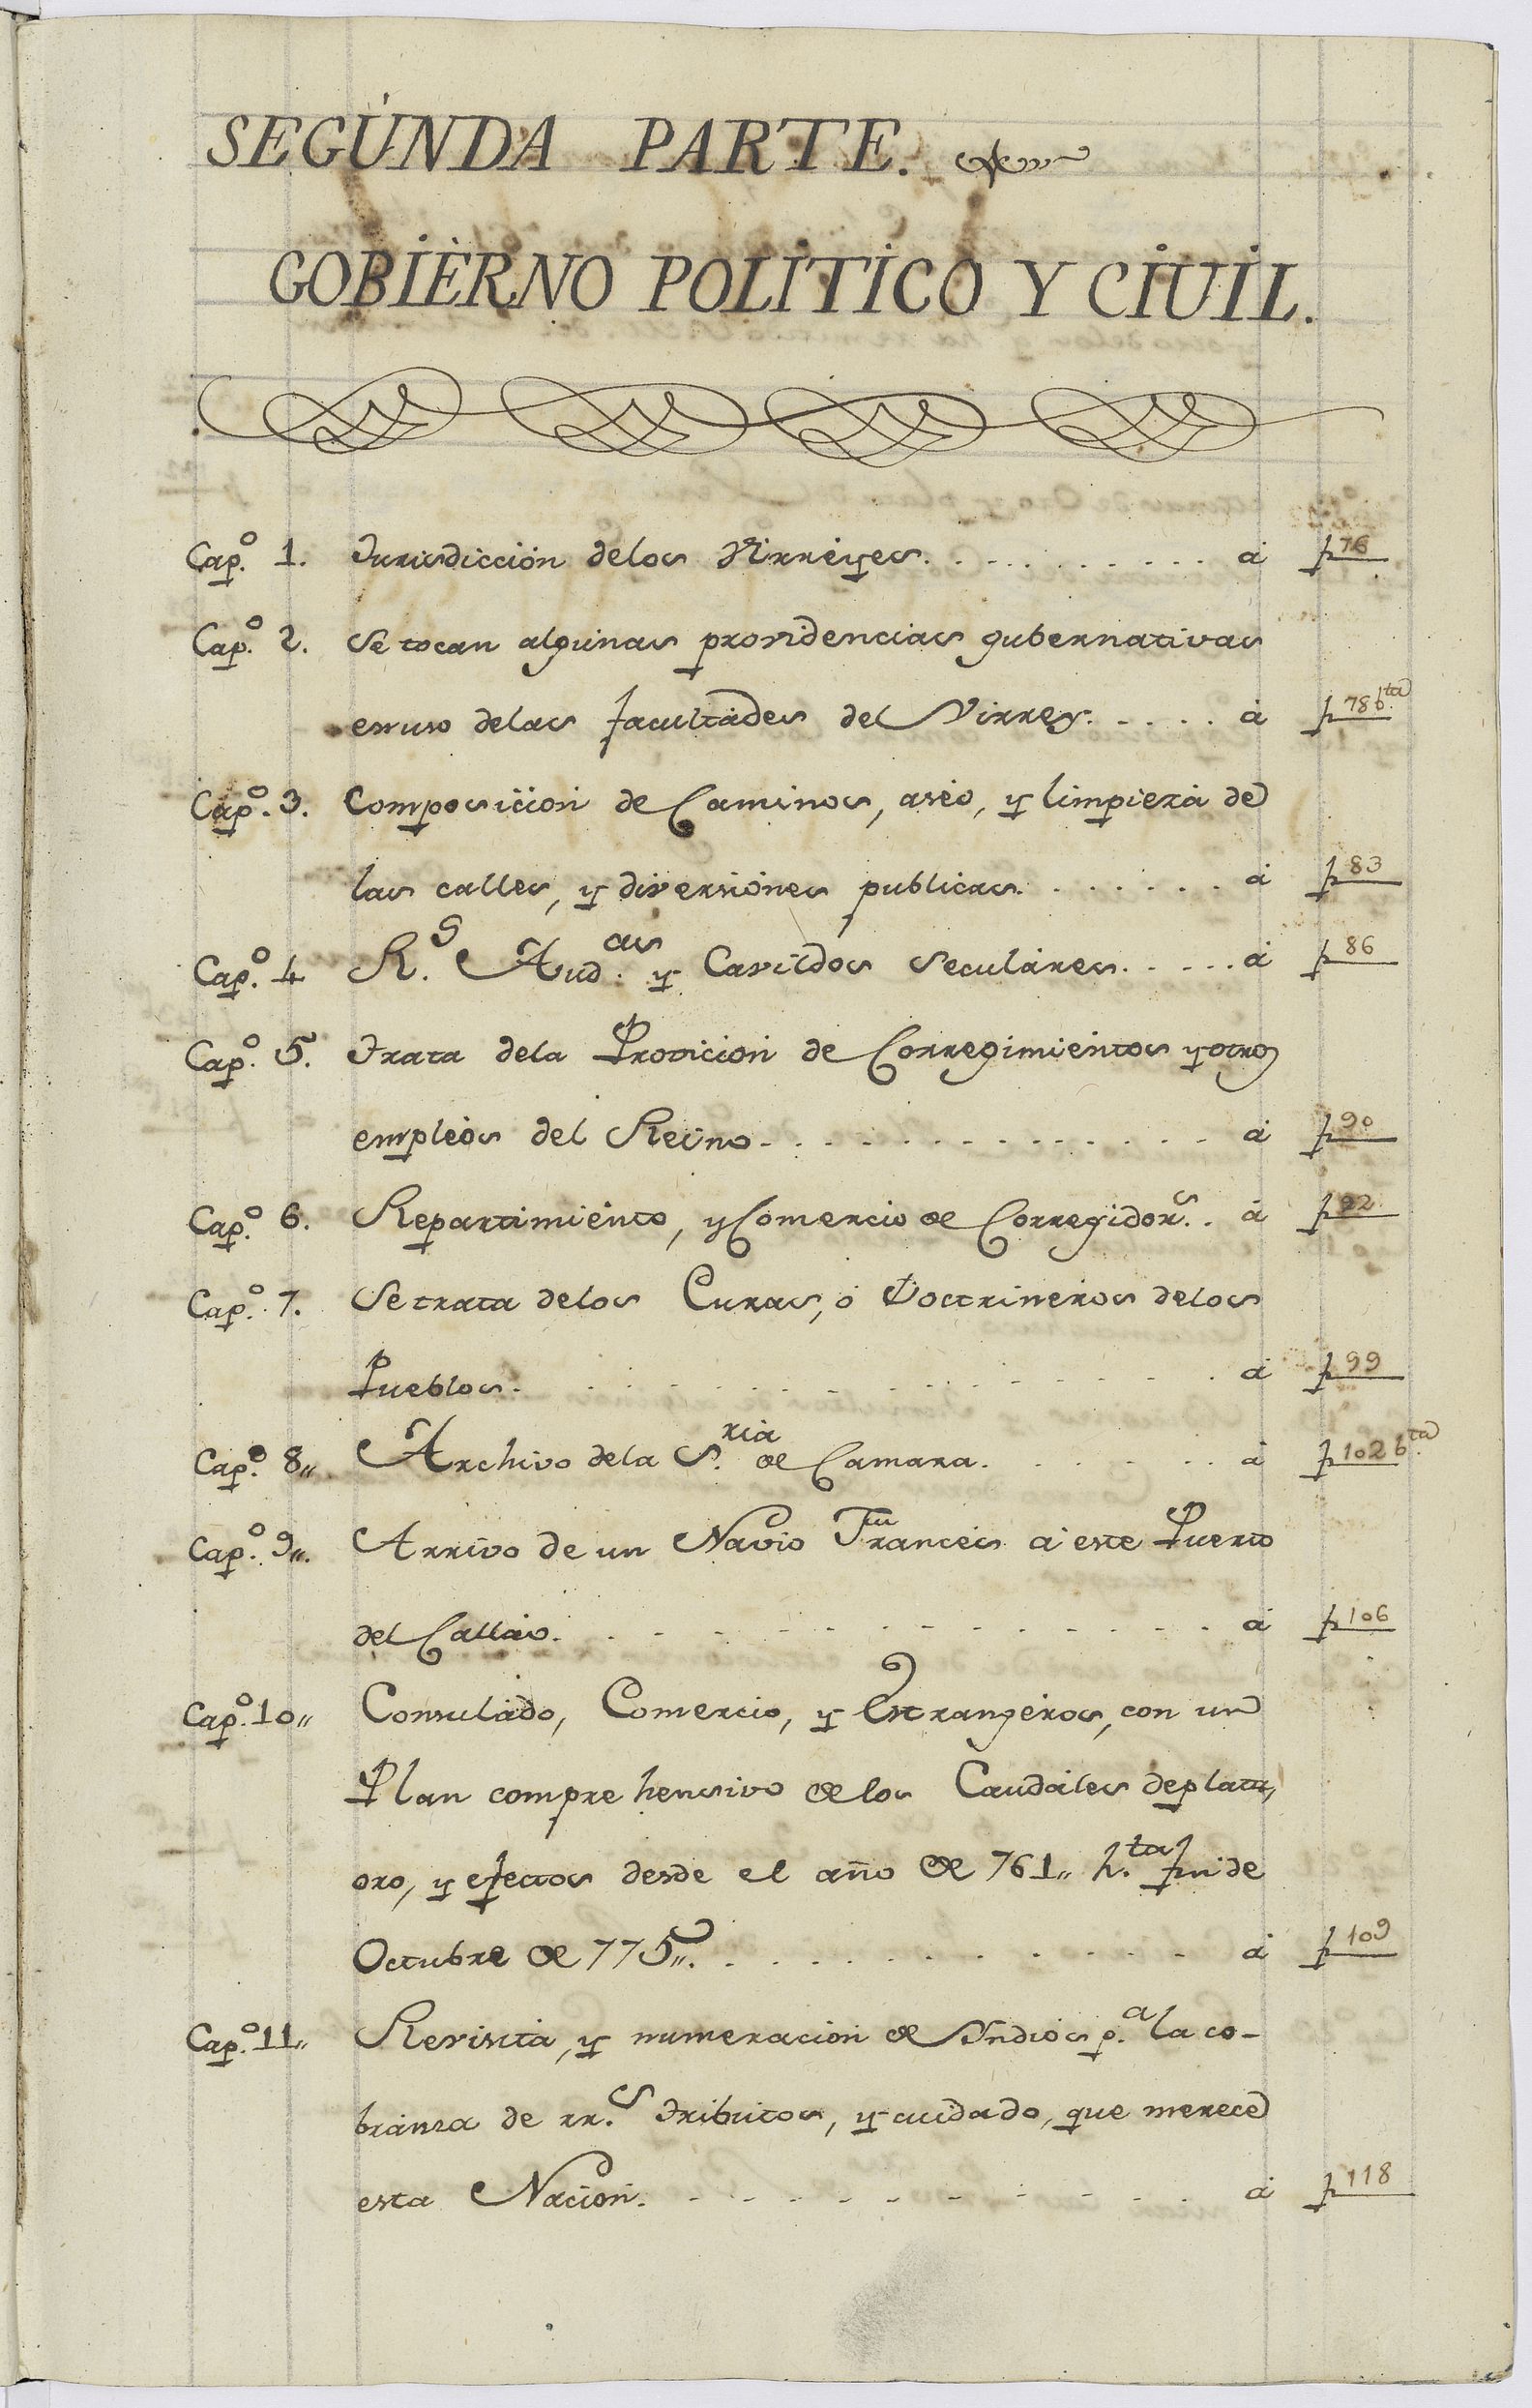 SEGUNDA PARTE.
GOBIERNO POLITICO Y CIUIL.
Cap.º 1. Jurisdicción delos Virreyes. . . . . . . . . . . a f 76
Cap.º 2. Se tocan algunas providencias gubernativas
en uso delas facultades del Virrey. . . . . a f 78 bta
Cap.º 3. Composicion de Caminos, aseo, y limpieza de
las calles, y diversiones publicas. . . . . . . a f 83
Cap.º 4 R.s Aud.as y Cavildos Seculares. . . . . a f 86
Cap.º 5. Trata dela Provicion de Corregimientos y otros
empleos del Reino . . . . . . . . . . . . . a f 90
Cap.º 6. Repartimiento, y Comercio de Corregidor.s . a f 92
Cap.º 7. Se trata delos Curas, o Doctrineros delos
Pueblos. . . . . . . . . . . . . . . a f 99
Cap.º 8,, Archivo dela S.ria de Camara. . . . . . a f 102 bta
Cap.º 9,, Arrivo de un Navio Frances a este Puerto
del Callao. . . . . . . . . . . . . . a f 106
Cap.º 10,, Consulado, Comercio, y Estrangeros, con un
Plan comprehensivo de los Caudales de plata,
oro, y efectos desde el año de 761,, h.ta fin de
Octubre de 775,,. . . . . . . . . . . a f 109
Cap.º 11,, Revista, y numeracion de Yndios p.a la co-
branza de rr.s tributos, y cuidado, que merece
esta Nacion. . . . . . . . . . . . a f 118